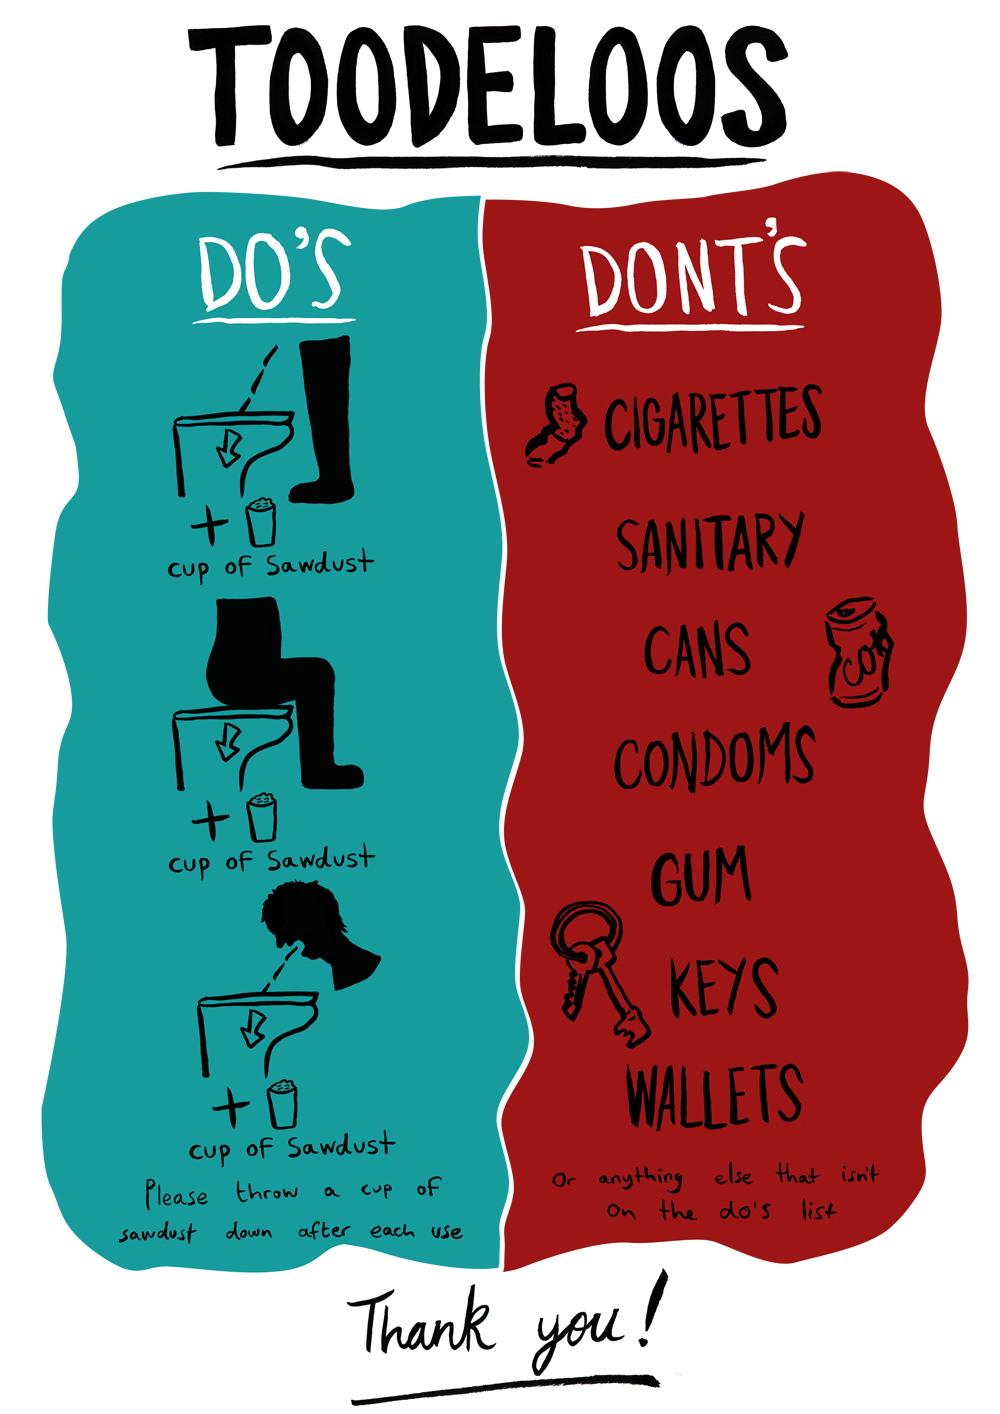 TOODELOOS
DO'S
cup of Sawdust
cup of Sawdust
cup of Sawdust
Please throw a cup of
sawdust down after each use
DONT'S
CIGARETTES
SANITARY
CANS
COK
CONDOMS
GUM
KEYS
WALLETS
Or anything else that isn't
on the do's list
Thank you!